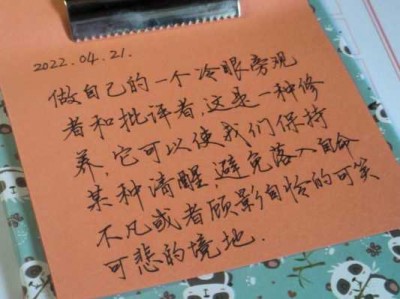 2022.04.21.
做自己的一个冷眼旁观
者和批评者,这是一种修
养,它可以使我们保持
某种清醒,避免落入自命
不凡或者顾影自怜的可笑
可悲的境地.